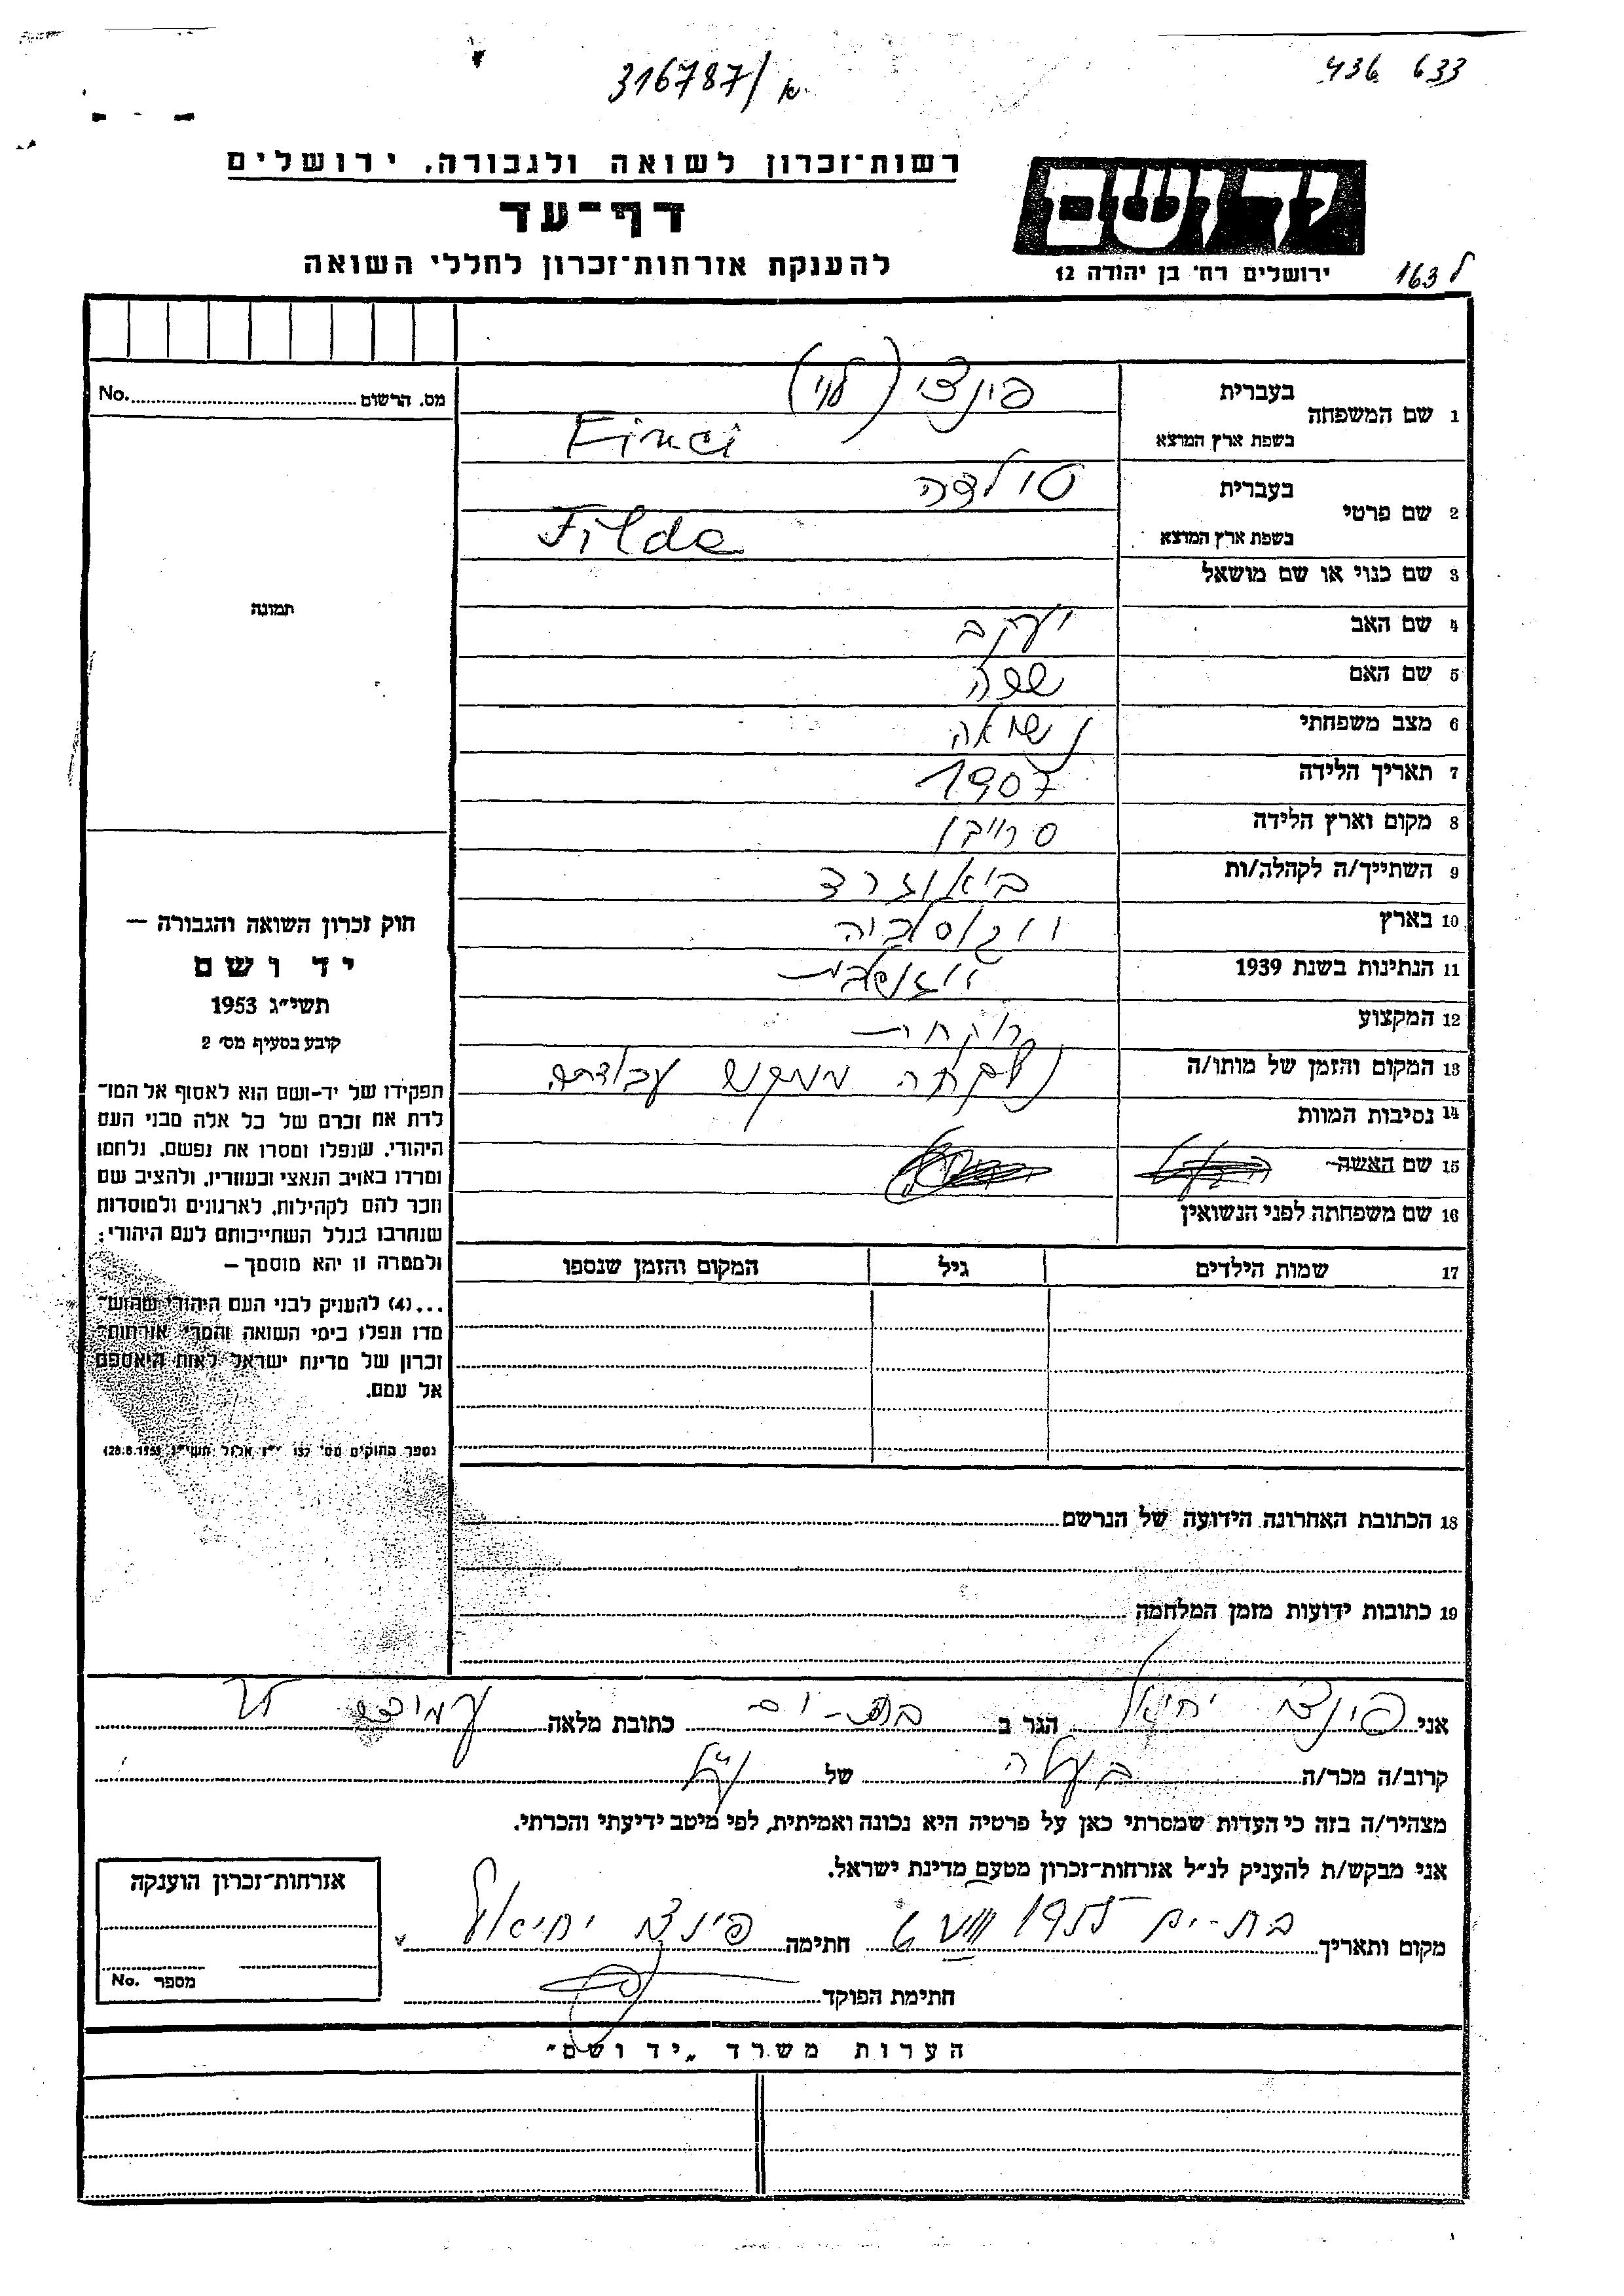 316787/א
436 633
רשות־זכרון לשואה ולגבורה, ירושלים
דף־עד
להענקת אזרחות־זכרון לחללי השואה
יד ושם
ירושלים רח׳ בן יהודה 12
163 ל
1 שם המשפחה
בעברית פינצי (לוי)
בשפת ארץ המוצא Finci
מס. הרשום No.
2 שם פרטי
בעברית טילדה
בשפת ארץ המוצא Tilda
3 שם כנוי או שם מושאל
תמונה
4 שם האב יעקב
5 שם האם
6 מצב משפחתי נשואה
7 תאריך הלידה 1907
8 מקום וארץ הלידה
9 השתייך/ה לקהלה/ות
10 בארץ יוגוסלביה
11 הנתינות בשנת 1939
12 המקצוע רוקחת
13 המקום והזמן של מותו/ה נלקחה ממקום עבודתה
14 נסיבות המוות
15 שם האשה
16 שם משפחתה לפני הנשואין
17 שמות הילדים גיל המקום והזמן שנספו
18 הכתובת האחרונה הידועה של הנרשם
19 כתובות ידועות מזמן המלחמה
חוק זכרון השואה והגבורה —
יד ושם
תשי״ג 1953
קובע בסעיף מס׳ 2
תפקידו של יד־ושם הוא לאסוף אל המו־
לדת את זכרם של כל אלה מבני העם
היהודי, שנפלו ומסרו את נפשם, נלחמו
ומרדו באויב הנאצי ובעוזריו, ולהציב שם
וזכר להם לקהילות, לארגונים ולמוסדות
שנחרבו בגלל השתייכותם לעם היהודי;
ולמטרה זו יהא מוסמך —
...(4) להעניק לבני העם היהודי שהוש־
מדו ונפלו בימי השואה והמרי אזרחות־
זכרון של מדינת ישראל לאות היאספם
אל עמם.
(ספר החוקים מס׳ 132 י״ז אלול תשי״ג 28.8.1953)
אני פינצי יחיאל הגר ב בת-ים כתובת מלאה
קרוב/ה מכר/ה בעלה של
מצהיר/ה בזה כי העדות שמסרתי כאן על פרטיה היא נכונה ואמיתית, לפי מיטב ידיעתי והכרתי.
אני מבקש/ת להעניק לנ״ל אזרחות־זכרון מטעם מדינת ישראל.
מקום ותאריך בת-ים 1955 VIII 6 חתימה פינצי יחיאל
חתימת הפוקד
אזרחות־זכרון הוענקה
מספר No.
הערות משרד „יד ושם״